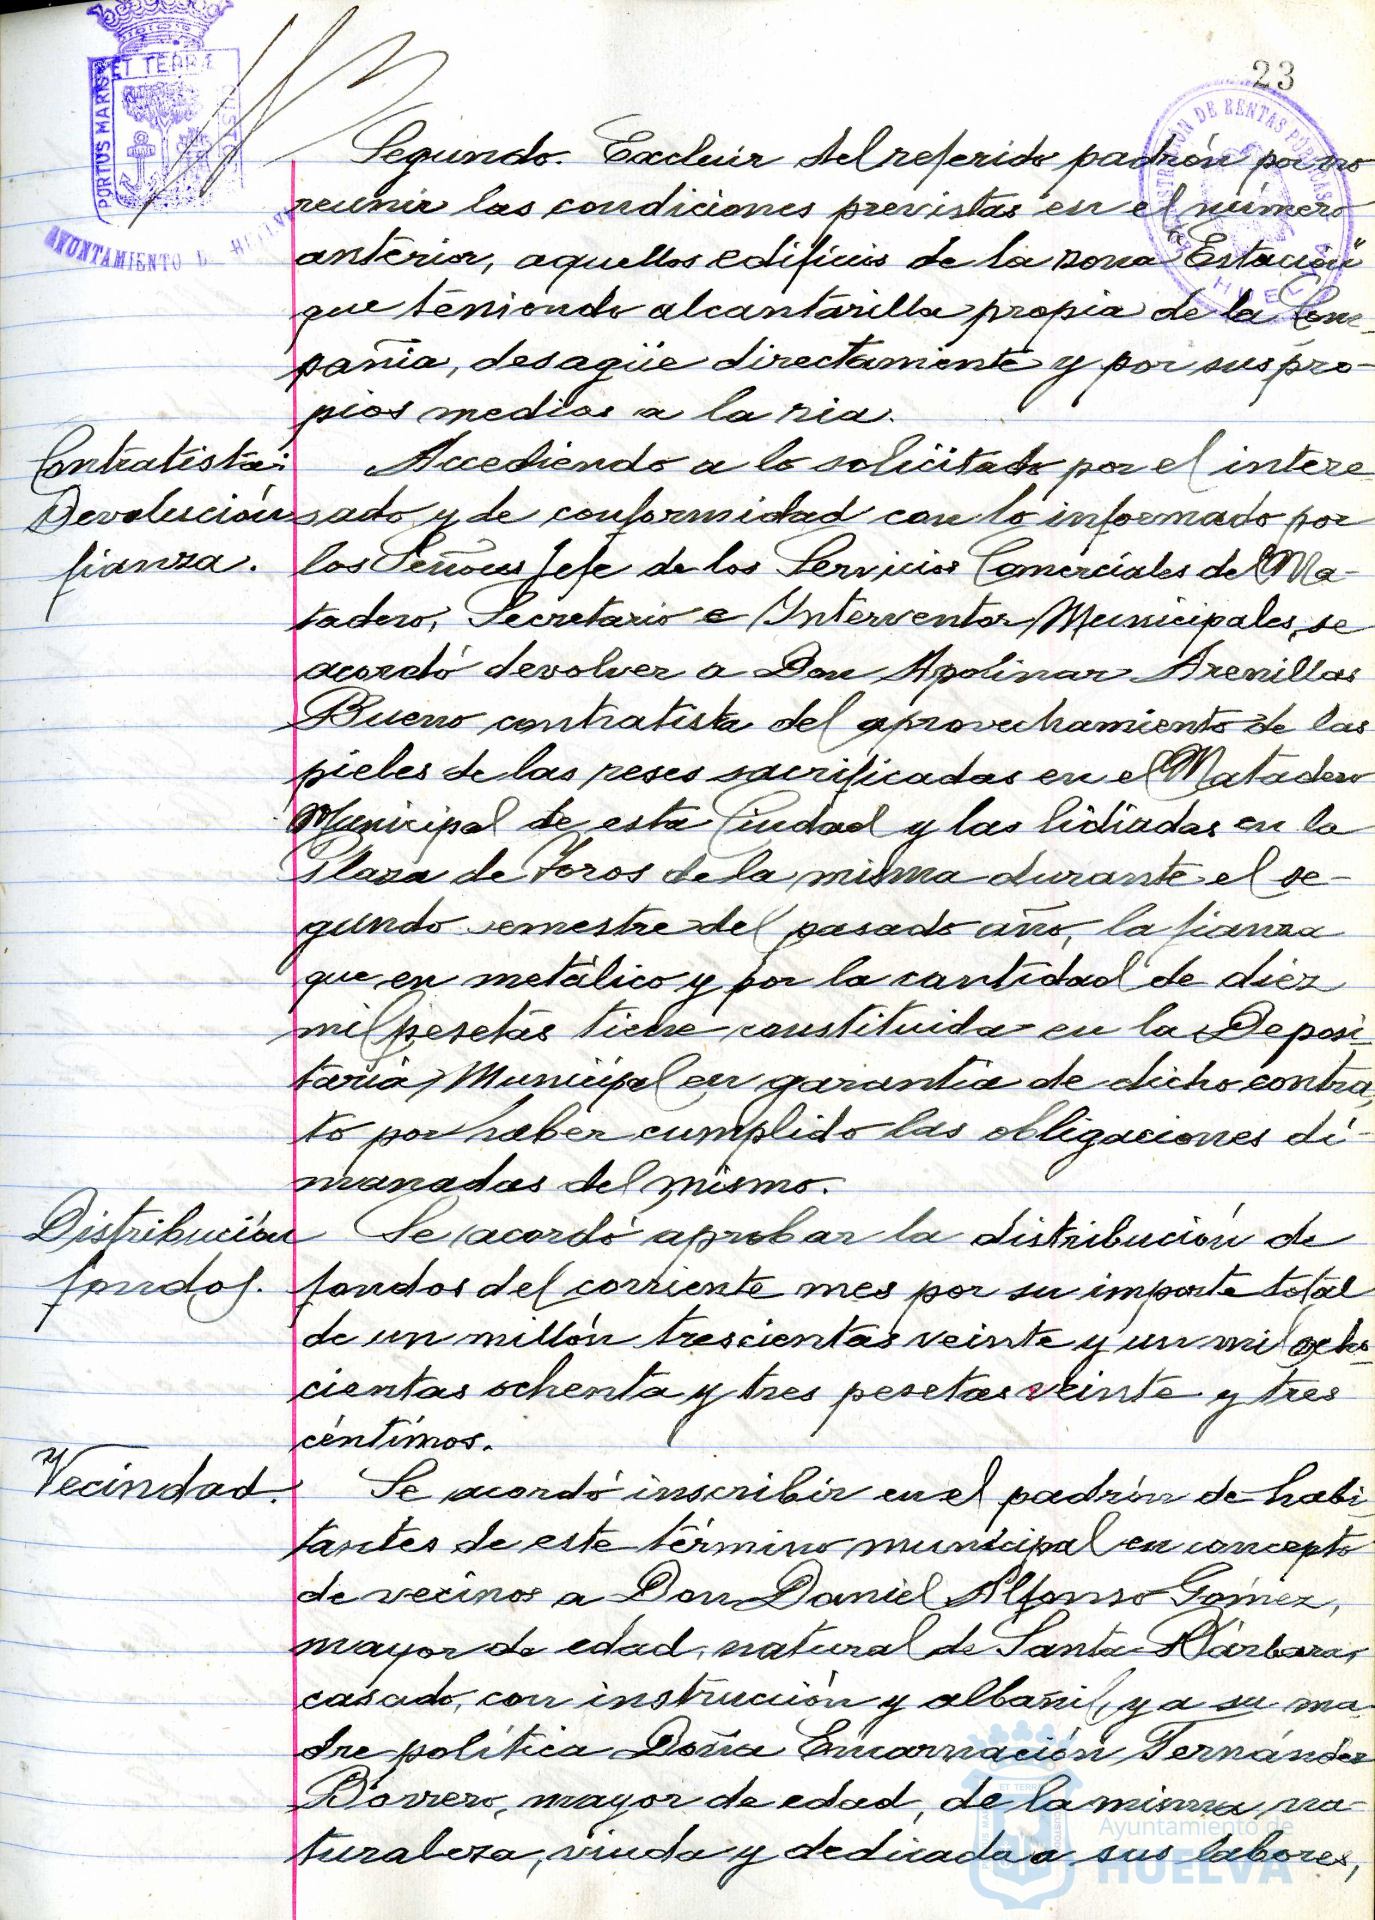 23
PORTUS MARIS ET TERRÆ CUSTODIA
AYUNTAMIENTO DE HUELVA
Segundo. Excluir del referido padrón por no
reunir las condiciones previstas en el número
anterior, aquellos edificios de la zona "Estación"
que teniendo alcantarilla propia de la Com-
pañia, desagüe directamente y por sus pro-
pios medios a la ria.
Contratista:
Devolución
fianza.
Accediendo a lo solicitado por el intere-
sado y de conformidad con lo informado por
los Señores Jefe de los Servicios Comerciales del Ma-
tadero, Secretario e Interventor Municipales, se
acordó devolver a Don Apolinar Arenillas
Bueno contratista del aprovechamiento de las
pieles de las reses sacrificadas en el Matadero
Municipal de esta Ciudad y las lidiadas en la
Plaza de Toros de la misma durante el se-
gundo semestre del pasado año, la fianza
que en metálico y por la cantidad de diez
mil pesetas tiene constituida en la Deposi-
taria Municipal en garantia de dicho contra-
to por haber cumplido las obligaciones di-
manadas del mismo.
Distribución
fondos.
Se acordó aprobar la distribución de
fondos del corriente mes por su importe total
de un millón trescientas veinte y un mil ocho-
cientas ochenta y tres pesetas veinte y tres
céntimos.
Vecindad.
Se acordó inscribir en el padrón de habi-
tantes de este término municipal en concepto
de vecinos a Don Daniel Alfonso Gómez,
mayor de edad, natural de Santa Bárbara,
casado, con instrucción y albañil, y a su ma-
dre política Doña Encarnación Fernández
Borrero, mayor de edad, de la misma na-
turaleza, viuda y dedicada a sus labores,
Ayuntamiento de
HUELVA